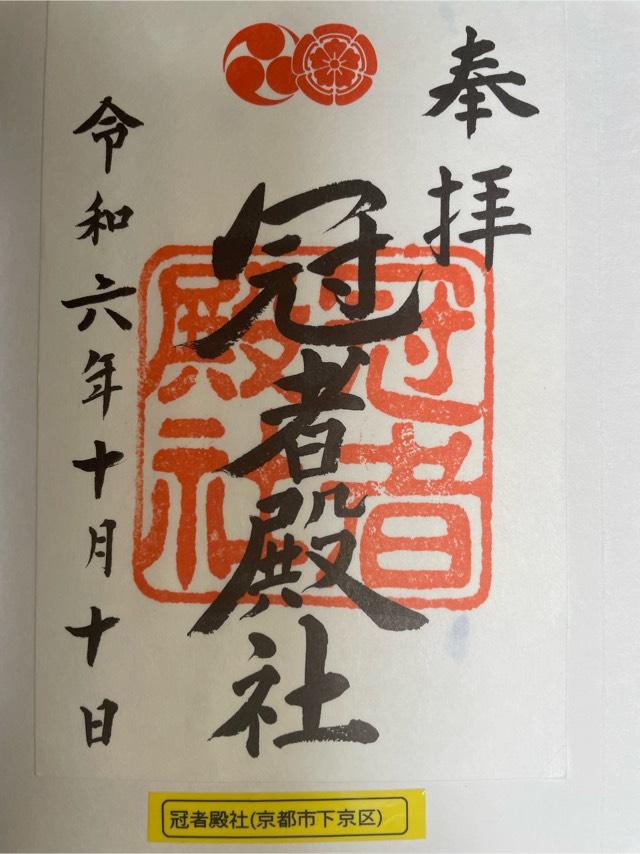 奉拝
冠者殿社
冠者
殿社
令和六年十月十日
冠者殿社(京都市下京区)